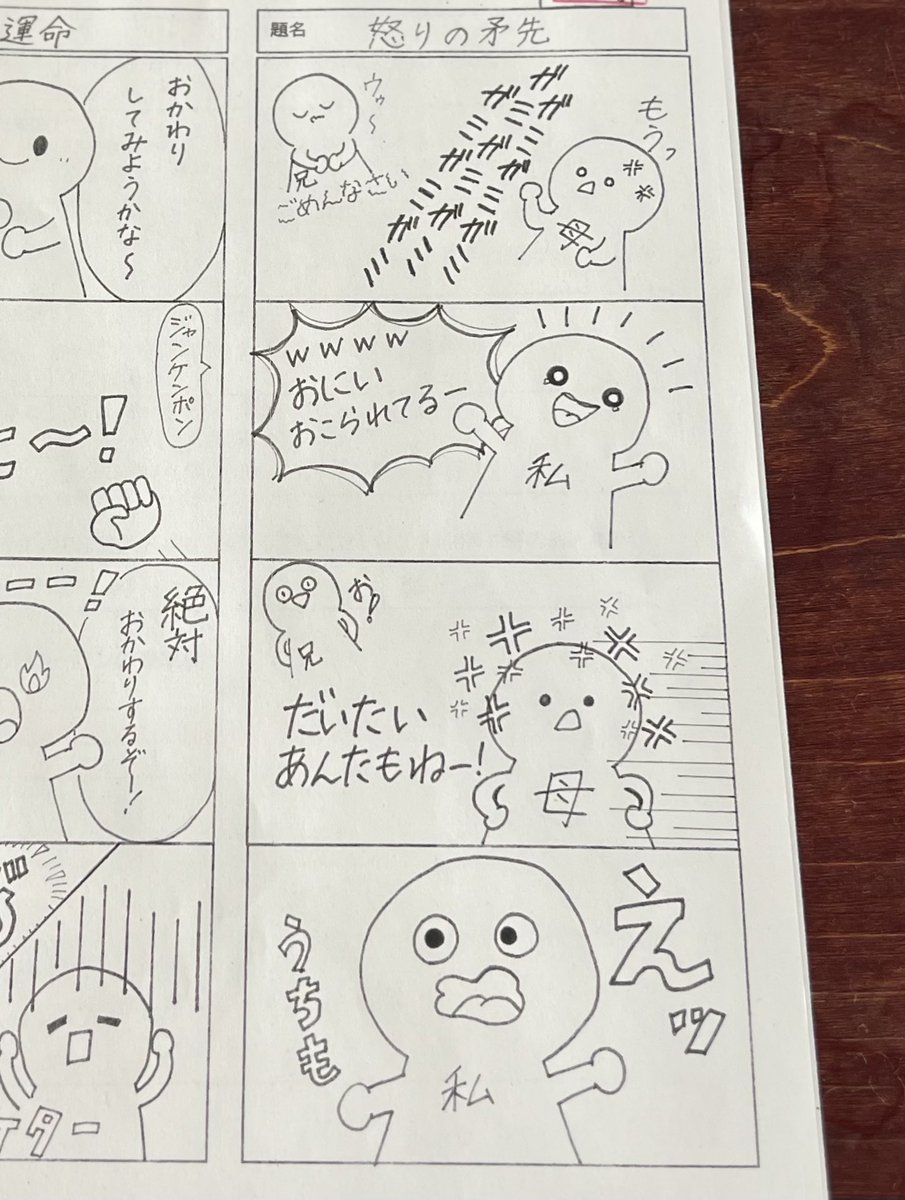 題名 怒りの矛先
もうっ
母
ガミガミ
ガミガミ
ガミガミ
ウゥ〜
兄
ごめんなさい
wwww
おにい
おこられてるー
私
お!
兄
だいたい
あんたもねー!
母
えッ
うちも
私
運命
おかわり
してみようかな〜
ジャンケンポン
〜!
絶対
おかわりするぞ〜!
ター